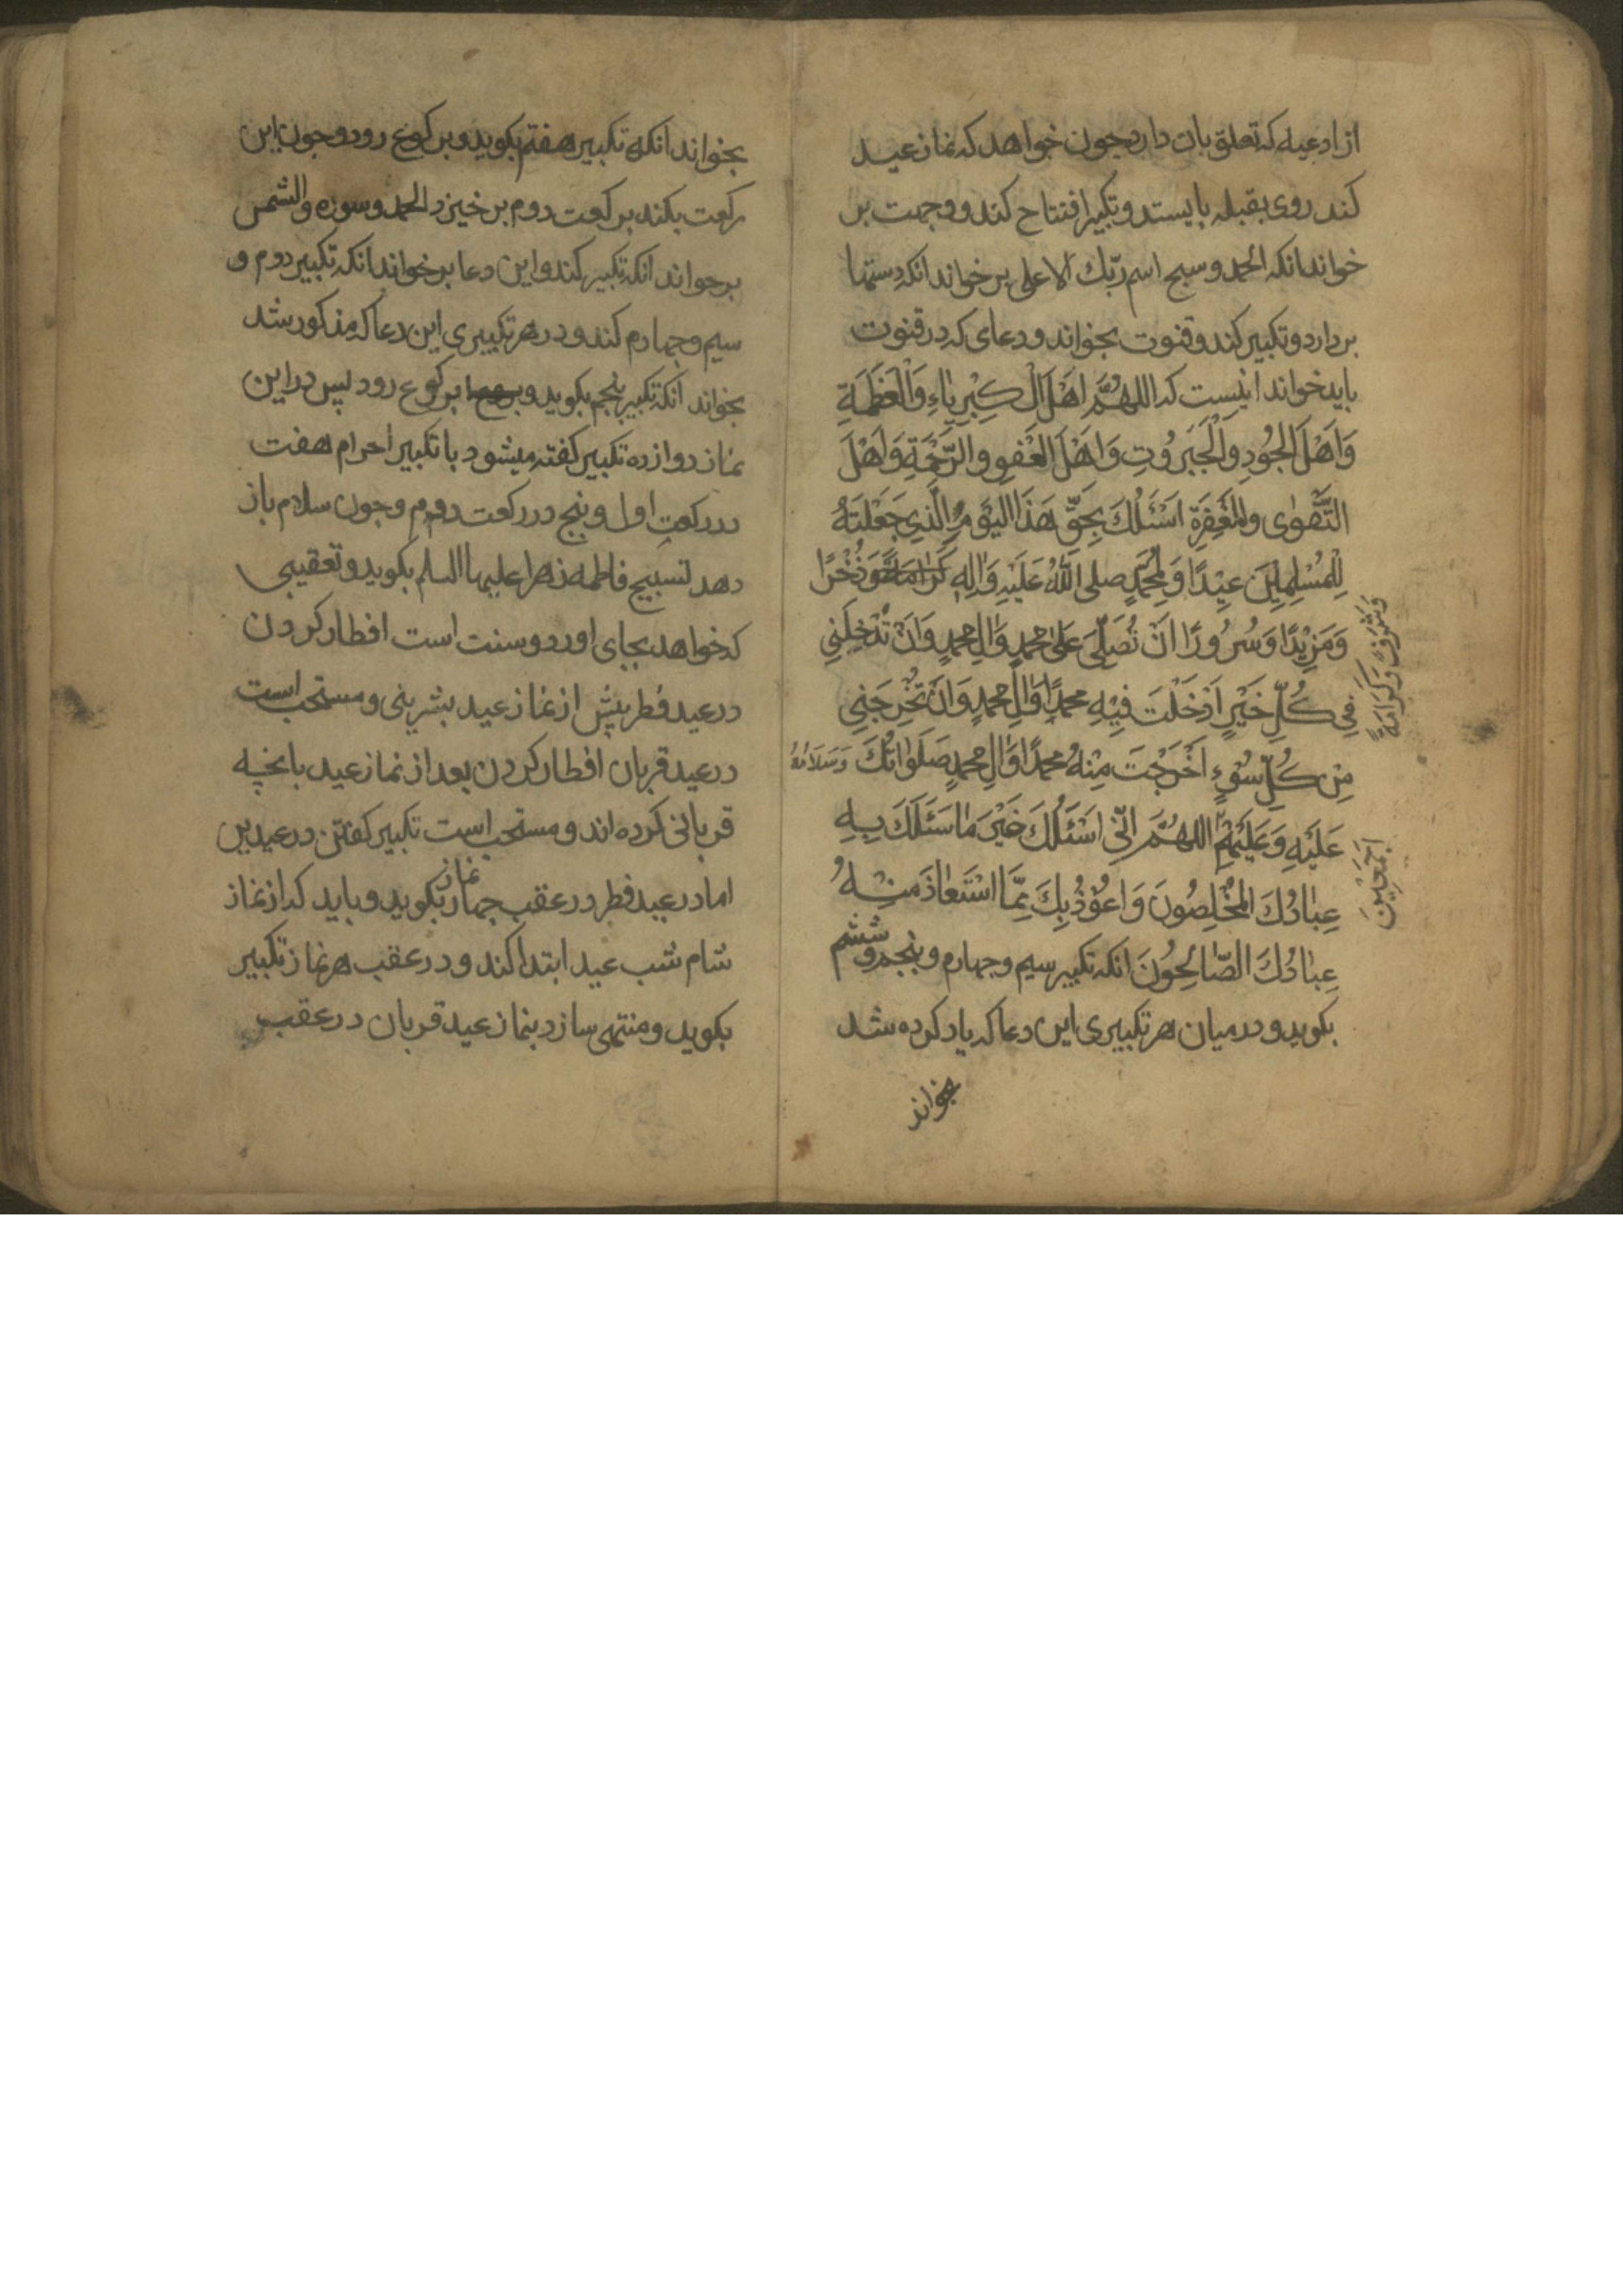 از ادعیه که تعلق بان دارد جون خواهد که نماز عید
کند روی بقبله بایستد و تکبیر افتتاح کند و وجهت بر
خواند انکه الحمد و سبح اسم ربّك الاعلی بر خواند انکه دستها
بردارد و تکبیر کند و قنوت بخواند و دعای که در قنوت
باید خواند اینست که اللهُمَّ اَهْلَ الْكِبْرِيَاءِ وَالْعَظَمَةِ
وَاَهْلَ الجُودِ وَالْجَبَرُوتِ وَاَهْلَ العَفْوِ والرَّحْمَةِ وَاَهْلَ
التَّقْوٰى والمَغْفِرَةِ اَسْئَلُكَ بِحَقِّ هَذَا اليَوْمِ الَّذِي جَعَلْتَهُ
لِلْمُسْلِمِينَ عِيْدًا وَلِمُحَمَّدٍ صلى اللّٰهُ عَلَيْهِ وَاٰلِهِ كَرَامَةً وَذُخْرًا
وَشَرَفًا وَكَرَامَةً
وَمَزِيْدًا وَسُرُورًا اَنْ تُصَلِّيَ عَلىٰ محمدٍ وَاٰلِ محمدٍ وَاَنْ تُدْخِلَنِي
فِي كُلِّ خَيْرٍ اَدْخَلْتَ فِيْهِ محمدًا وَاٰلَ محمدٍ وَاَنْ تُخْرِجَنِي
مِنْ كُلِّ سُوْءٍ اَخْرَجْتَ مِنْهُ محمدًا وَاٰلَ محمدٍ صَلَوَاتُكَ وَسَلَامُهُ
عَلَيْهِ وَعَلَيْهِمْ اللهُمَّ اِنِّي اَسْئَلُكَ خَيْرَ مٰا سَئَلَكَ بِهِ
اَجْمَعِيْنَ
عِبَادُكَ المُخْلِصُونَ وَاَعُوْذُ بِكَ مِمَّا اسْتَعٰاذَ مِنْهُ
عِبَادُكَ الصّٰالِحُوْنَ انکه تکبیر سیم و جهارم و پنجم و ششم
بکوید و در میان هر تکبیری این دعا که یاد کرده شد
بخواند
بخواند انکه تکبیر هفتم بکوید و برکوع رود و جون این
رکعت بکند برکعت دوم بر خیزد الحمد و سوره والشمس
برخواند انکه تکبیر کند و این دعا برخواند انکه تکبیر دوم و
سیم و جهارم کند و در هر تکبیری این دعا که مذکور شد
بخواند انکه تکبیر پنجم بکوید و برکوع رود پس در این
نماز دوازده تکبیر کفته میشود با تکبیر احرام هفت
در رکعت اول و پنج در رکعت دوم و جون سلام باز
دهد تسبیح فاطمه زهرا علیها السلم بکوید و تعقیبی
که خواهد بجای اورد و سنت است افطار کردن
در عید فطر پیش از نماز عید بشیرینی و مستحب است
در عید قربان افطار کردن بعد از نماز عید بانچه
قربانی کرده اند و مستحب است تکبیر کفتن در عیدین
اما در عید فطر در عقب جهار نماز بکوید و باید که از نماز
شام شب عید ابتدا کند و در عقب هر نماز تکبیر
بکوید و منتهی سازد بنماز عید قربان در عقب